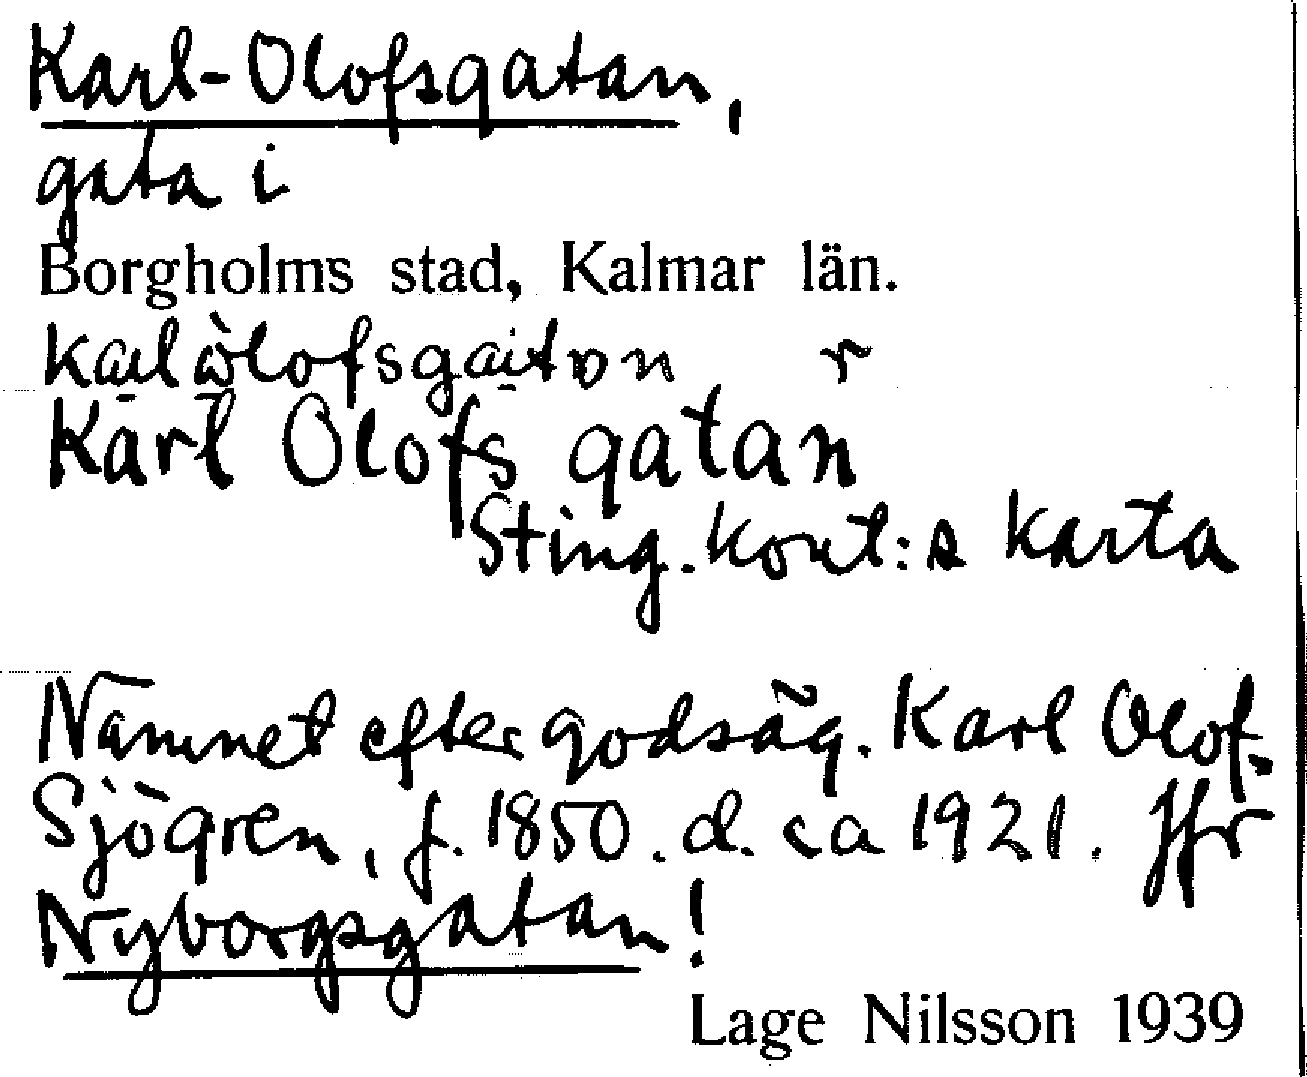 Karl-Olofsgatan,
gata i
Borgholms stad, Kalmar län.
r
Karl Olofs gatan
Sting. kont:s karta
Namnet efter godsäg. Karl Olof
Sjögren, f. 1850. d. ca 1921. Jfr
Nyborgsgatan!
Lage Nilsson 1939